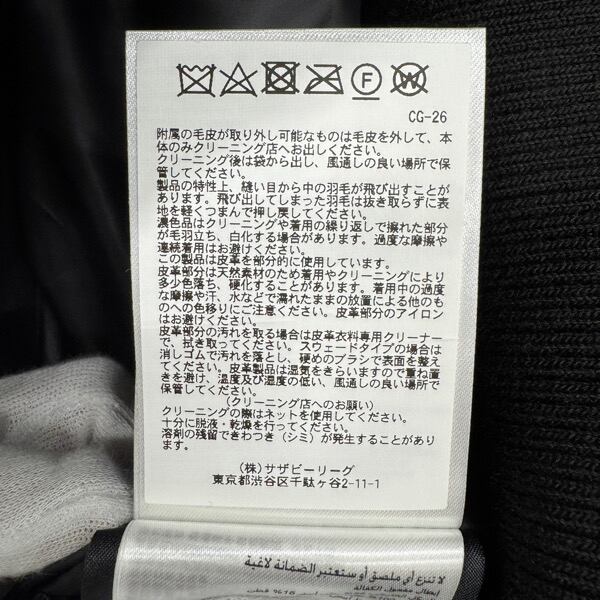 F
W
CG-26
附属の毛皮が取り外し可能なものは毛皮を外して、本
体のみクリーニング店へお出しください。
クリーニング後は袋から出し、風通しの良い場所で保
管してください。
製品の特性上、縫い目から中の羽毛が飛び出すことが
あります。飛び出してしまった羽毛は抜き取らずに表
地を軽くつまんで押し戻してください。
濃色品はクリーニングや着用の繰り返しで擦れた部分
が毛羽立ち、白化する場合があります。過度な摩擦や
連続着用はお避けください。
この製品は皮革を部分的に使用しています。
皮革部分は天然素材のため着用やクリーニングにより
多少色落ち、硬化することがあります。着用中の過度
な摩擦や汗、水などで濡れたままの放置による他のも
のへの色移りにご注意ください。皮革部分のアイロン
はお避けください。
皮革部分の汚れを取る場合は皮革衣料専用クリーナー
で、拭き取ってください。スウェードタイプの場合は
消しゴムで汚れを落とし、硬めのブラシで表面を整え
てください。皮革製品は湿気をきらいますので重ね置
きを避け、温度及び湿度の低い、風通しの良い場所で
保管してください。
(クリーニング店へのお願い)
クリーニングの際はネットを使用してください。
十分に脱液・乾燥を行ってください。
溶剤の残留できわつき(シミ)が発生することがあり
ます。
(株)サザビーリーグ
東京都渋谷区千駄ヶ谷2-11-1
لا تنزع أي ملصق أو ستعتبر الضمانة لاغية